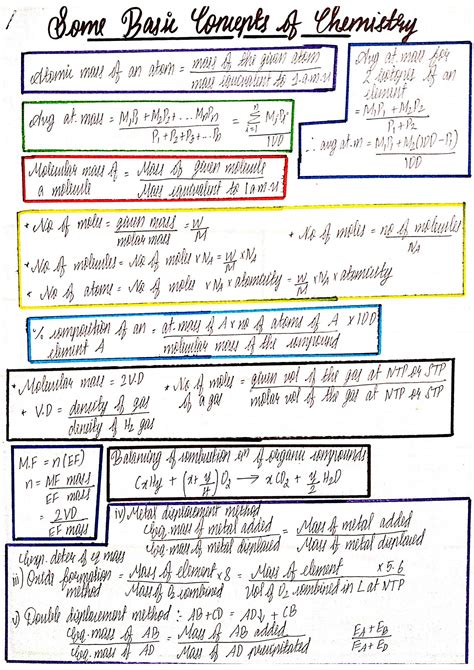 Some Basic Concepts of Chemistry
Atomic mass of an atom = mass of the given atom / mass equivalent to 1 a.m.u
Avg at. mass for
2 isotopes of an
element
= M₁P₁ + M₂P₂ / P₁ + P₂
∴ avg at.m = M₁P₁ + M₂(100 - P₁) / 100
Avg at. mass = M₁P₁ + M₂P₂ + ... MₙPₙ / P₁ + P₂ + P₃ + ... Pₙ = Σ i=1 n MᵢPᵢ / 100
Molecular mass of a molecule = Mass of given molecule / Mass equivalent to 1 a.m.u
* No of moles = given mass / molar mass = W / M
* No of moles = no of molecules / Nₐ
* No of molecules = No of moles × Nₐ = W/M × Nₐ
* No of atoms = No of moles × Nₐ × atomicity = W/M × Nₐ × atomicity
% composition of an element A = at. mass of A × no of atoms of A × 100 / molecular mass of the compound
* Molecular mass = 2V.D
* V.D = density of gas / density of H₂ gas
* No of moles of a gas = given vol of the gas at NTP or STP / molar vol of the gas at NTP or STP
M.F = n(EF)
n = MF mass / EF mass
= 2VD / EF mass
Balancing of combustion eqⁿ of organic compounds
CxHy + (x + y/4) O₂ → xCO₂ + y/2 H₂O
iv) Metal displacement method
Eq. mass of metal added / Eq. mass of metal displaced = Mass of metal added / Mass of metal displaced
of eq mass
iii) Oxide formation method = Mass of element / Mass of O₂ combined × 8 = Mass of element × 5.6 / Vol of O₂ combined in L at NTP
v) Double displacement method : AB + CD = AD↓ + CB
Eq. mass of AB / Eq. mass of AD = Mass of AB added / Mass of AD precipitated